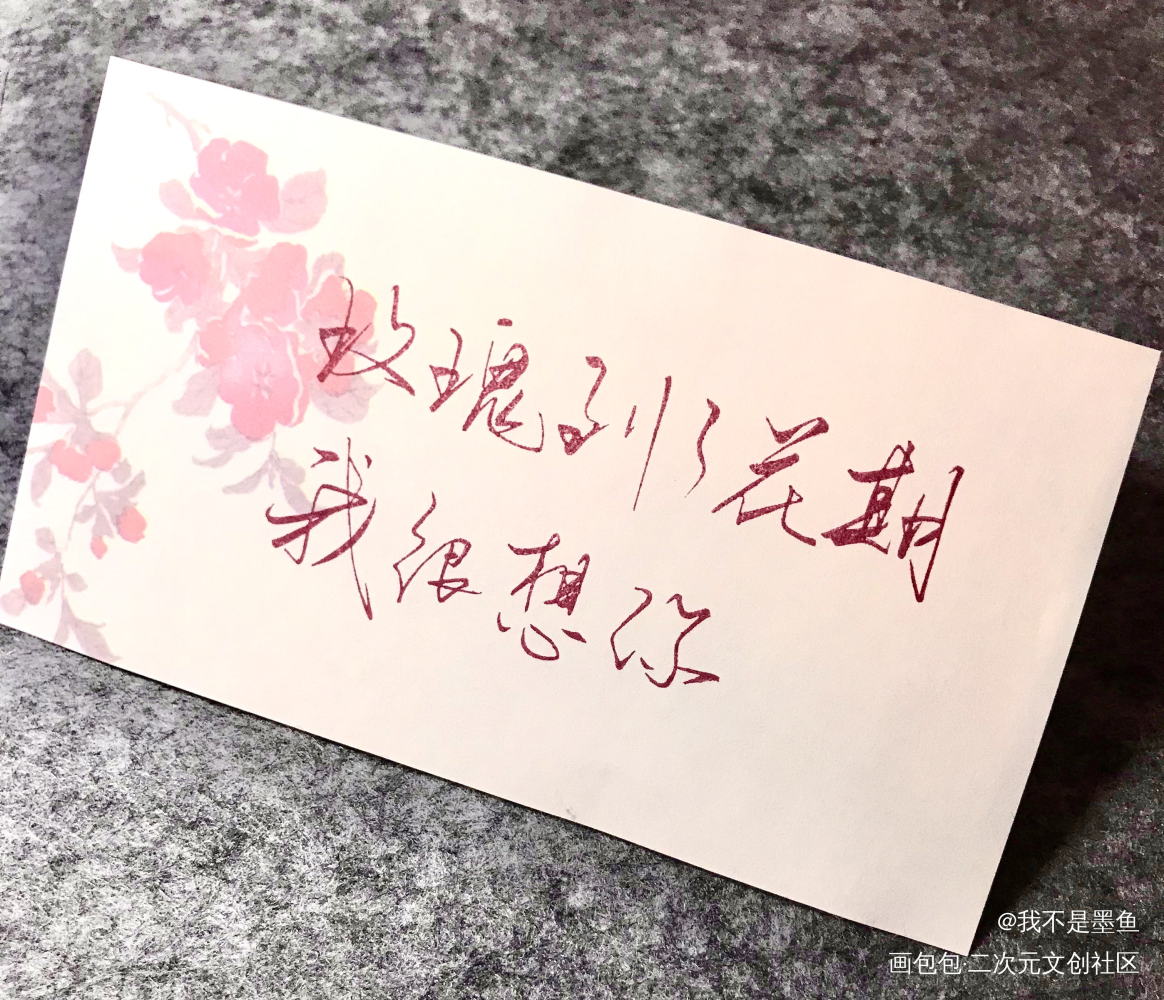 玫瑰到了花期
我很想你
@我不是墨鱼
画包包·二次元文创社区